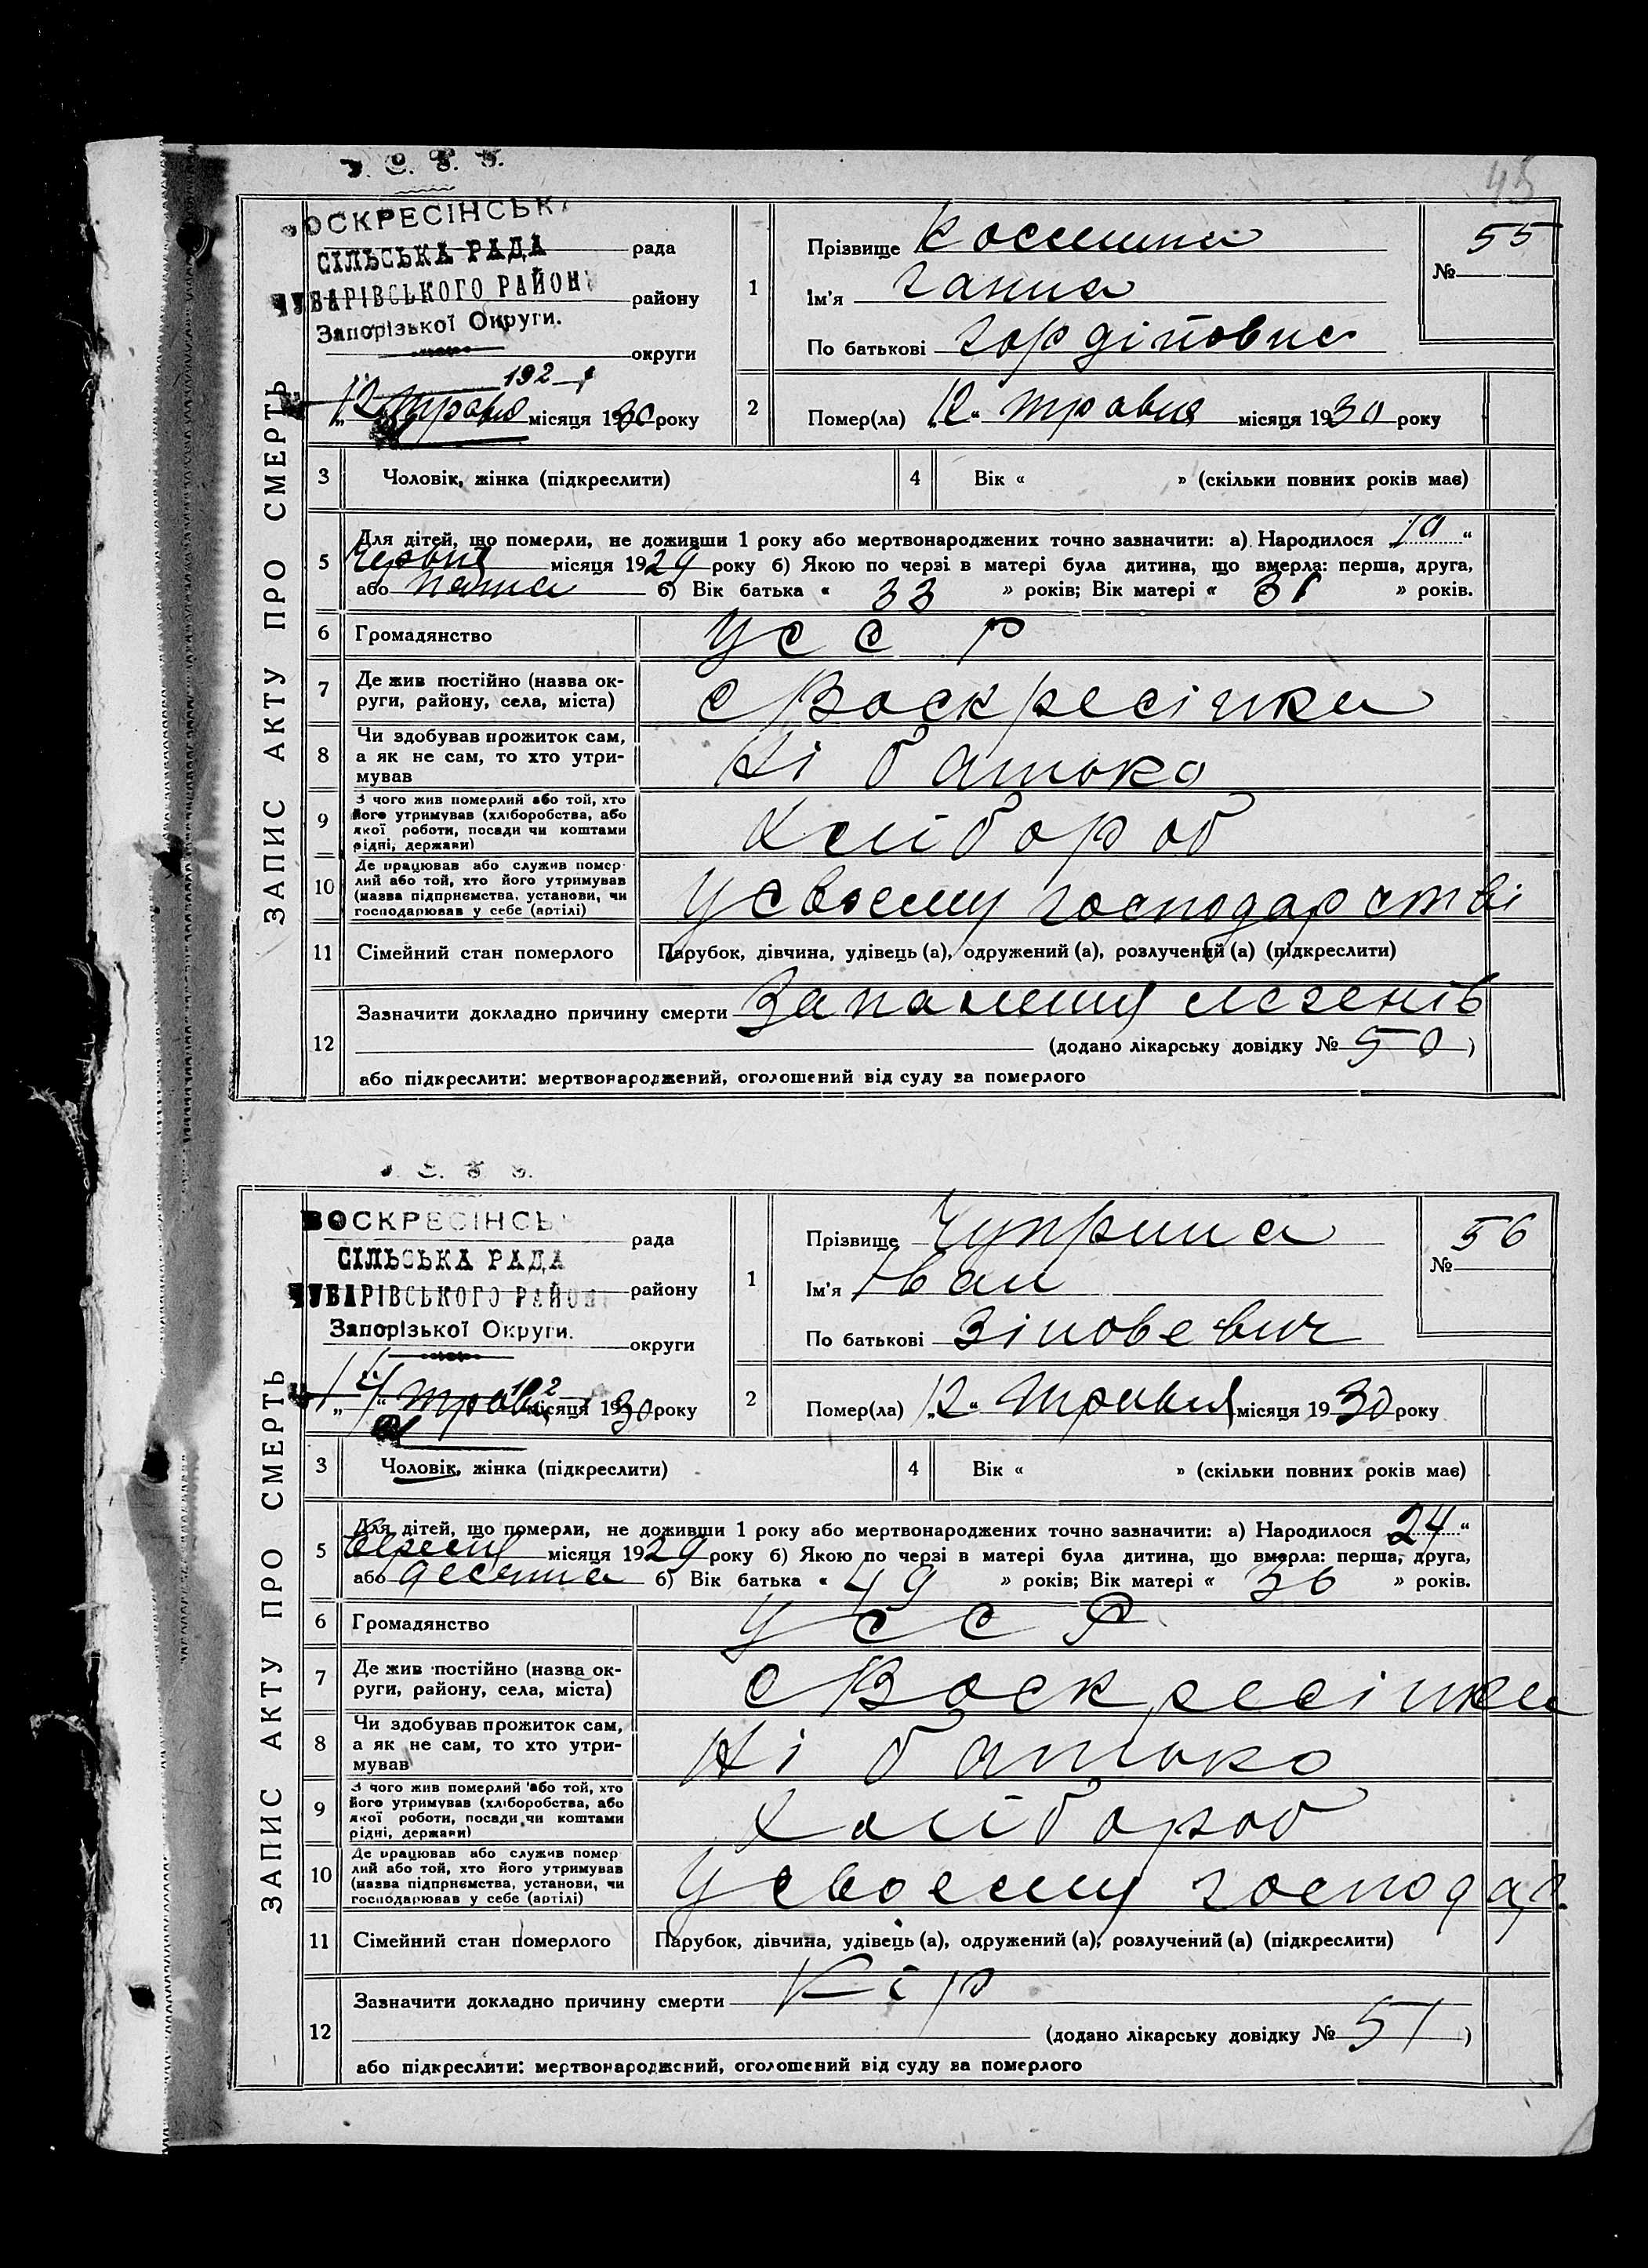 45
ВОСКРЕСІНСЬКА
СІЛЬСЬКА РАДА рада
ЧУБАРІВСЬКОГО РАЙОНУ району
Запорізької Округи.
округи
192
„12“ травня місяця 1930 року
ЗАПИС АКТУ ПРО СМЕРТЬ
1
Прізвище
Ім'я Ганна
По батькові Гордіїовна
№ 55
2 Помер(ла) „12“ травня місяця 1930 року
3 Чоловік, жінка (підкреслити)
4 Вік « » (скільки повних років має)
5 Для дітей, що померли, не доживши 1 року або мертвонароджених точно зазначити: а) Народилося „ “
червня місяця 1929 року б) Якою по черзі в матері була дитина, що вмерла: перша, друга,
або пята б) Вік батька « 33 » років; Вік матері « 31 » років.
6 Громадянство УССР
7 Де жив постійно (назва ок-
руги, району, села, міста) с Воскресінка
8 Чи здобував прожиток сам,
а як не сам, то хто утри-
мував Ні батько
9 З чого жив померлий або той, хто
його утримував (хліборобства, або
якої роботи, посади чи коштами
рідні, держави) Хлібороб
10 Де працював або служив помер-
лий або той, хто його утримував
(назва підприємства, установи, чи
господарював у себе (артілі) У своєму господарстві
11 Сімейний стан померлого Парубок, дівчина, удівець (а), одружений (а), розлучений (а) (підкреслити)
12 Зазначити докладно причину смерти Запалення легенів
(додано лікарську довідку № 50)
або підкреслити: мертвонароджений, оголошений від суду за померлого
ВОСКРЕСІНСЬ
рада
СІЛЬСЬКА РАДА
ЧУБАРІВСЬКОГО РАЙОНУ району
Запорізької Округи.
округи
192
„14“ травня місяця 1930 року
ЗАПИС АКТУ ПРО СМЕРТЬ
1
Прізвище Чуприна
Ім'я Іван
По батькові Зіновевич
№ 56
2 Помер(ла) „12“ травня місяця 1930 року
3 Чоловік, жінка (підкреслити)
4 Вік « » (скільки повних років має)
5 Для дітей, що померли, не доживши 1 року або мертвонароджених точно зазначити: а) Народилося „24“
вересня місяця 1929 року б) Якою по черзі в матері була дитина, що вмерла: перша, друга,
або десята б) Вік батька « 49 » років; Вік матері « 36 » років.
6 Громадянство УССР
7 Де жив постійно (назва ок-
руги, району, села, міста) с Воскресінка
8 Чи здобував прожиток сам,
а як не сам, то хто утри-
мував Ні батько
9 З чого жив померлий або той, хто
його утримував (хліборобства, або
якої роботи, посади чи коштами
рідні, держави) Хлібороб
10 Де працював або служив помер
лий або той, хто його утримував
(назва підприємства, установи, чи
господарював у себе (артілі) У своєму господар.
11 Сімейний стан померлого Парубок, дівчина, удівець (а), одружений (а), розлучений (а) (підкреслити)
12 Зазначити докладно причину смерти Кір
(додано лікарську довідку № 51)
або підкреслити: мертвонароджений, оголошений від суду за померлого